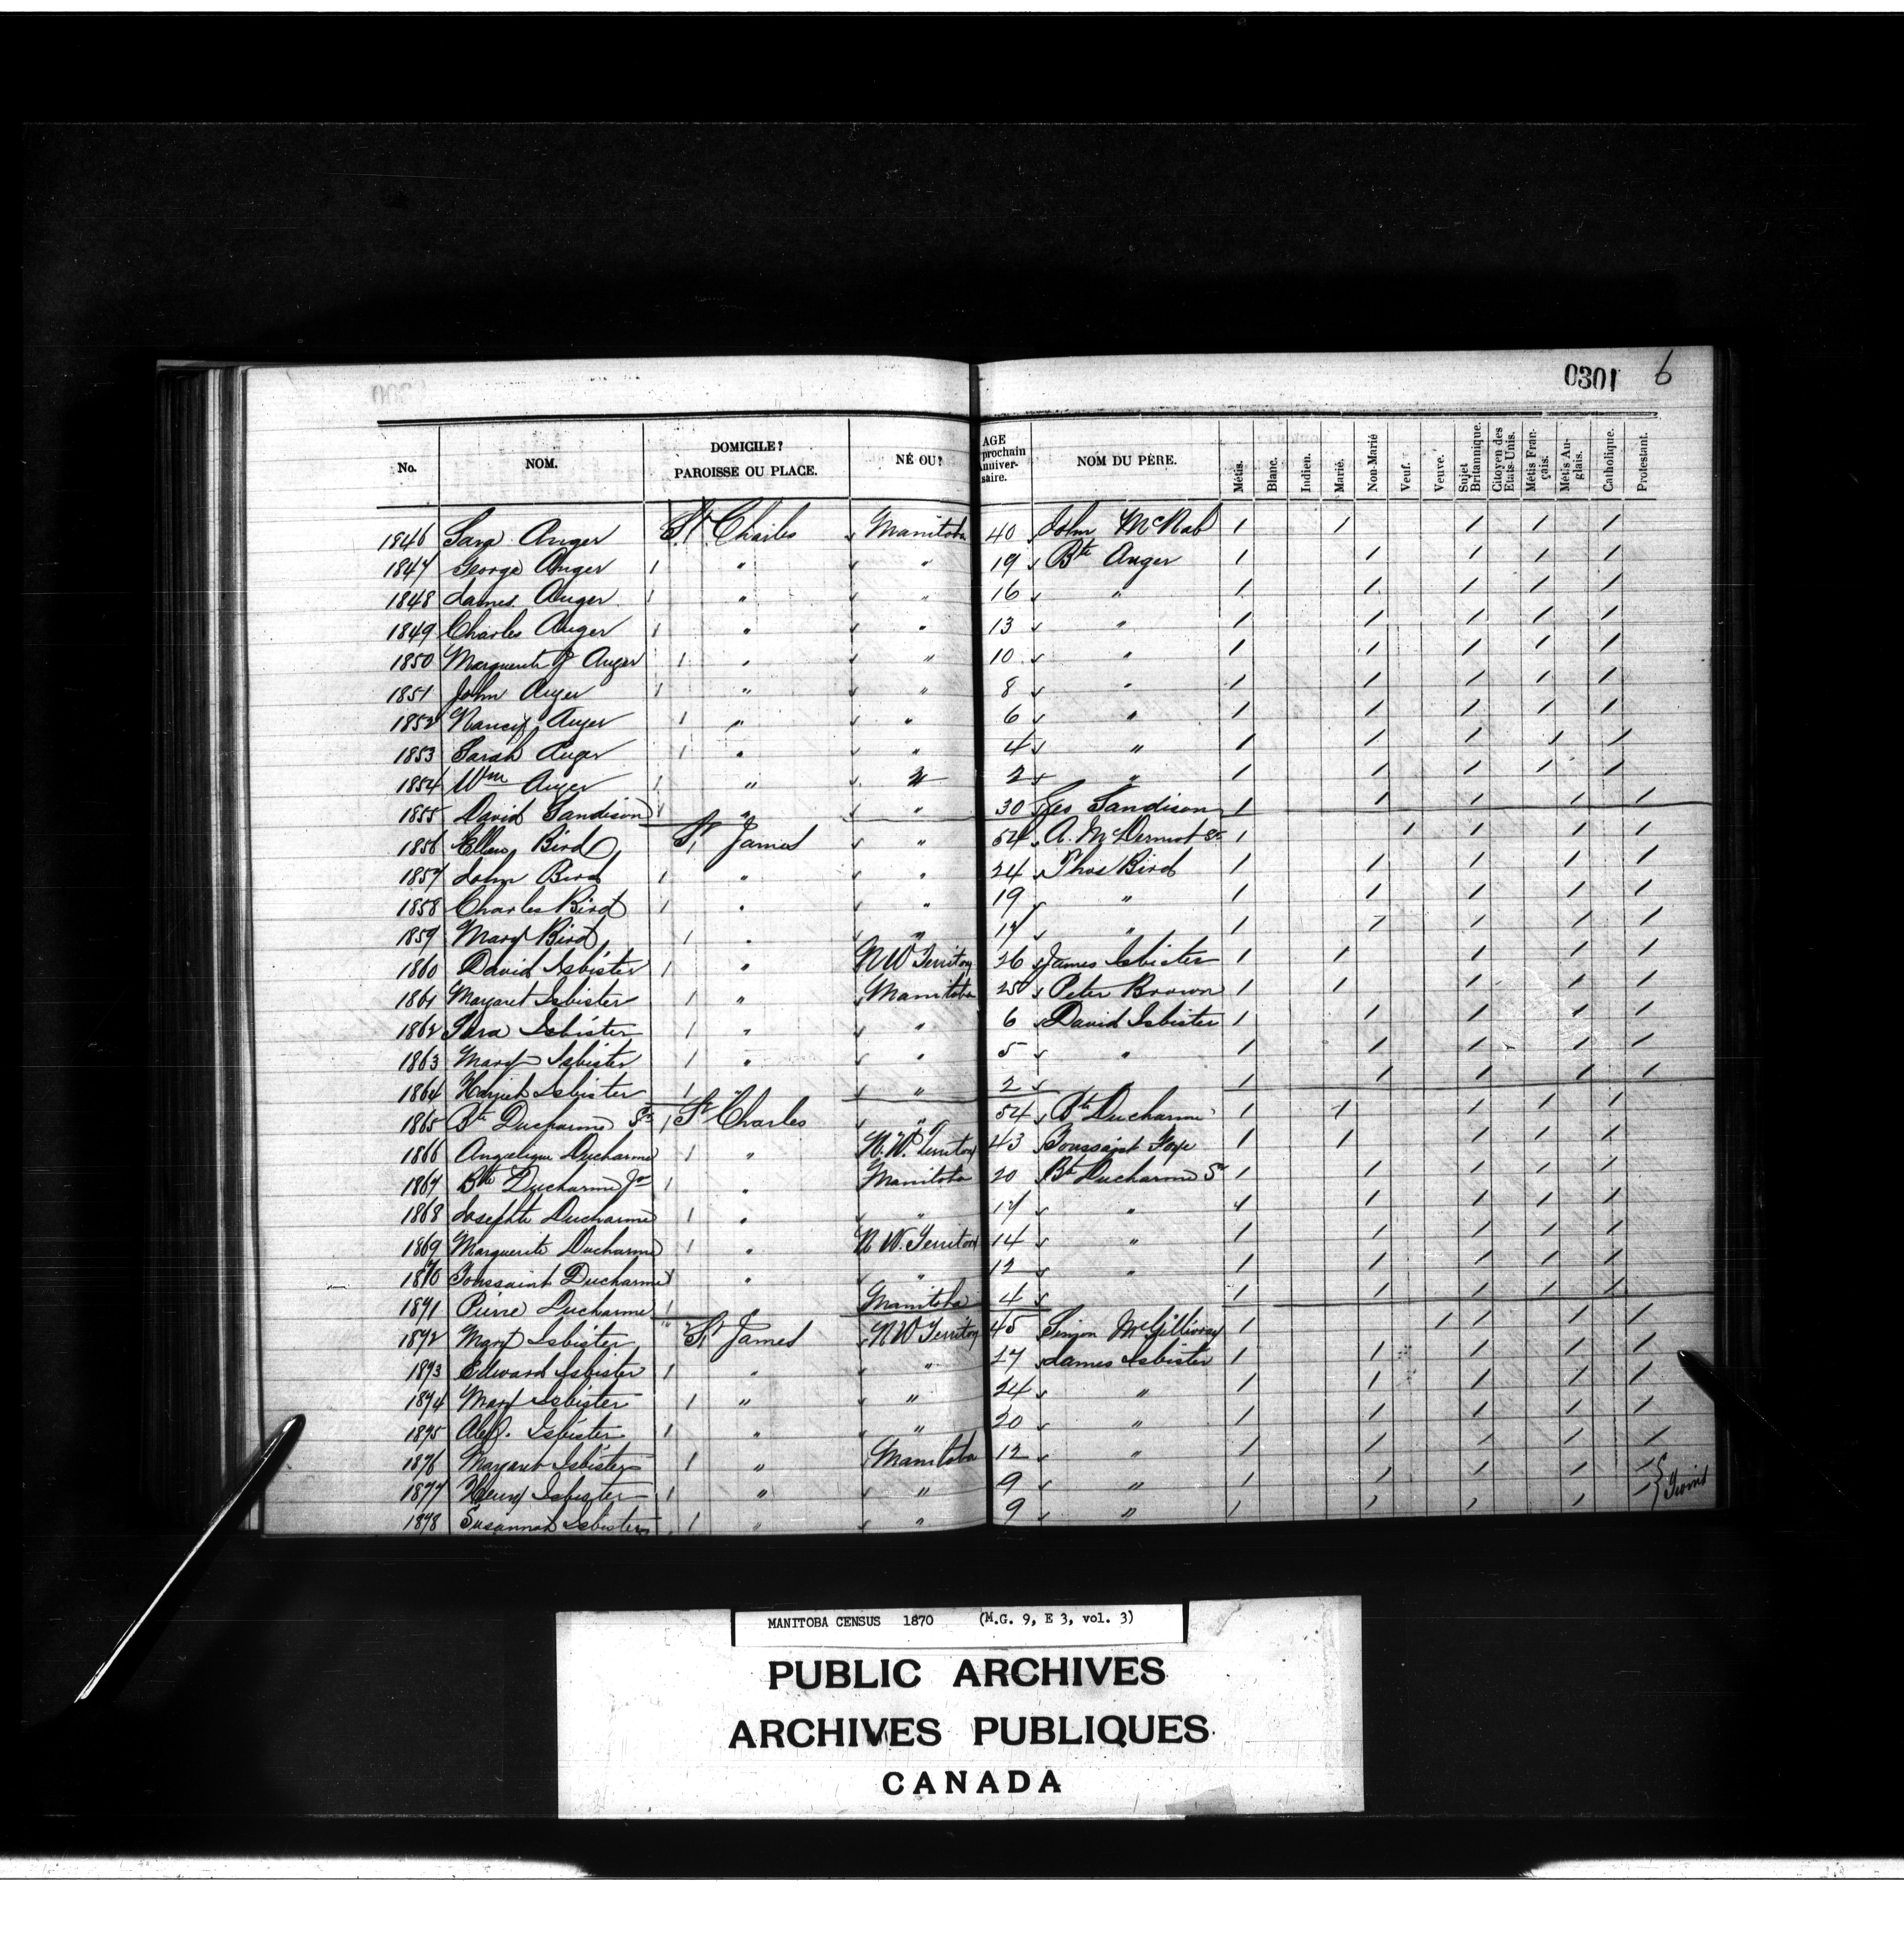 0301 6
No. NOM. DOMICILE? PAROISSE OU PLACE. NÉ OU? AGE prochain Anniversaire. NOM DU PÈRE. Métis. Blanc. Indien. Marié. Non-Marié Veuf. Veuve. Sujet Britannique. Citoyen des Etats-Unis. Métis Français. Métis Anglais. Catholique. Protestant.
1846 Sara Auger St. Charles Manitoba 40 John McNab / / / / /
1847 George Auger / " " 19 Bte Auger / / / / /
1848 James Auger / " " 16 " / / / / /
1849 Charles Auger / " " 13 " / / / / /
1850 Marguerite J Auger / " " 10 " / / / / /
1851 John Auger / " " 8 " / / / / /
1852 Nancy Auger / " " 6 " / / / / /
1853 Sarah Auger / " " 4 " / / / / /
1854 Wm Auger / " " 2 " / / / / /
1855 David Sandison / " " 30 Geo Sandison / / / / /
1856 Ellen Bird St. James " 54 A. McDermot Sr. / / / / /
1857 John Bird / " " 24 Thos Bird / / / / /
1858 Charles Bird / " " 19 " / / / / /
1859 Mary Bird / " " 17 " / / / / /
1860 David Isbister / " N W Territory 26 James Isbister / / / / /
1861 Margaret Isbister / " Manitoba 25 Peter Brown / / / / /
1862 Sara Isbister / " " 6 David Isbister / / / / /
1863 Mary Isbister / " " 5 " / / / / /
1864 Harriet Isbister / " " 2 " / / / / /
1865 Bte Ducharme Sr. / St Charles " 54 Bte Ducharme / / / / /
1866 Angelique Ducharme / " N.W. Territory 43 Toussaint / / / / /
1867 Bte Ducharme Jr / " Manitoba 20 Bte Ducharme Sr / / / / /
1868 Josephte Ducharme / " " 17 " / / / / /
1869 Marguerite Ducharme / " N W. Territory 14 " / / / / /
1870 Toussaint Ducharme / " " 12 " / / / / /
1871 Pierre Ducharme / " Manitoba 4 / / / / /
1872 Mary Isbister St. James N W Territory 45 Simon McGillivray / / / / /
1873 Edward Isbister / " " 27 James Isbister / / / / /
1874 Mary Isbister / " " 24 " / / / / /
1875 Alex. Isbister / " " 20 " / / / / /
1876 Margaret Isbister / " Manitoba 12 " / / / / /
1877 Henry Isbister / " " 9 " / / / / / } Twins
1878 Susannah Isbister / " " 9 " / / / / /
MANITOBA CENSUS 1870 (M.G. 9, E 3, vol. 3)
PUBLIC ARCHIVES
ARCHIVES PUBLIQUES
CANADA